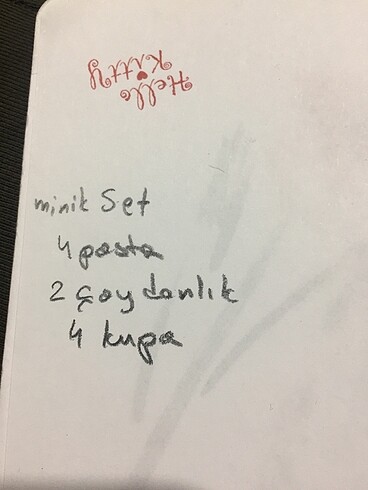 Hello
Kitty
minik Set
4 pasta
2 çaydanlık
4 kupa